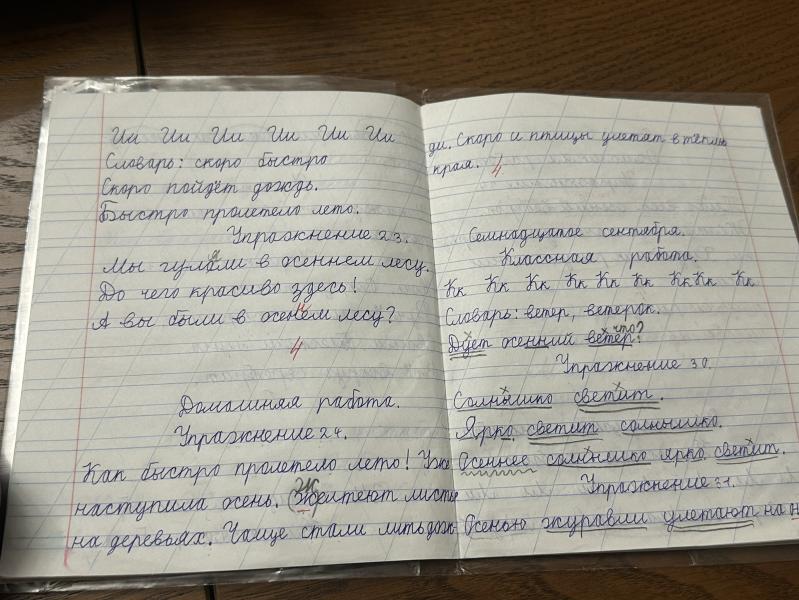 Ии Ии Ии Ии Ии Ии
Словарь: скоро быстро
Скоро пойдёт дождь.
Быстро пролетело лето.
Упражнение 23.
Мы гуляли в осеннем лесу.
До чего красиво здесь!
А вы были в осенем лесу?
4
Домашняя работа.
Упражнение 24.
Как быстро пролетело лето! Уже
наступила осень. Желтеют листья
на деревьях. Чаще стали лить дож-
ди. Скоро и птицы улетят в тёплы
края. 4
Семнадцатое сентября.
Классная работа.
Кк Кк Кк Кк Кк Кк Кк Кк Кк
Словарь: ветер, ветерок.
что?
Дует осенний ветер.
Упражнение 30.
Солнышко светит.
Ярко светит солнышко.
Осеннее солнышко ярко светит.
Упражнение 31.
Осенью журавли улетают на